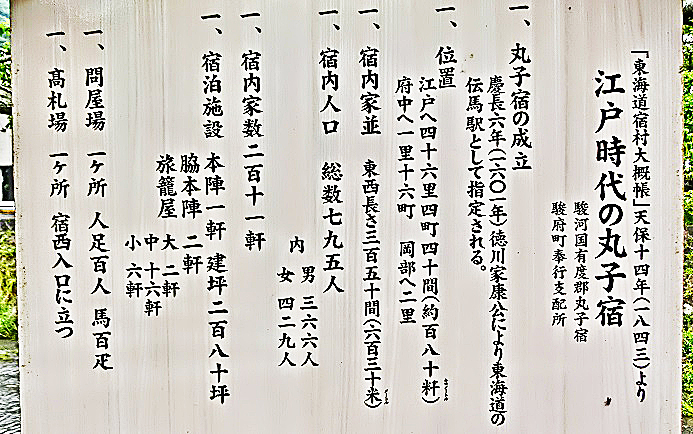 「東海道宿村大概帳」天保十四年(一八四三)より
江戸時代の丸子宿
駿河国有度郡丸子宿
駿府町奉行支配所
一、丸子宿の成立
慶長六年(一六〇一年)徳川家康公により東海道の
伝馬駅として指定される。
一、位置
江戸へ四十六里四町四十間(約百八十粁)
府中へ一里十六町 岡部へ二里
一、宿内家並 東西長さ三百五十間(六百三十米)
一、宿内人口 総数七九五人
内 男 三六六人
女 四二九人
一、宿内家数 二百十一軒
一、宿泊施設 本陣一軒 建坪二百八十坪
脇本陣 二軒
旅籠屋 大 二軒
中 十六軒
小 六軒
一、問屋場 一ヶ所 人足百人 馬百疋
一、高札場 一ヶ所 宿西入口に立つ